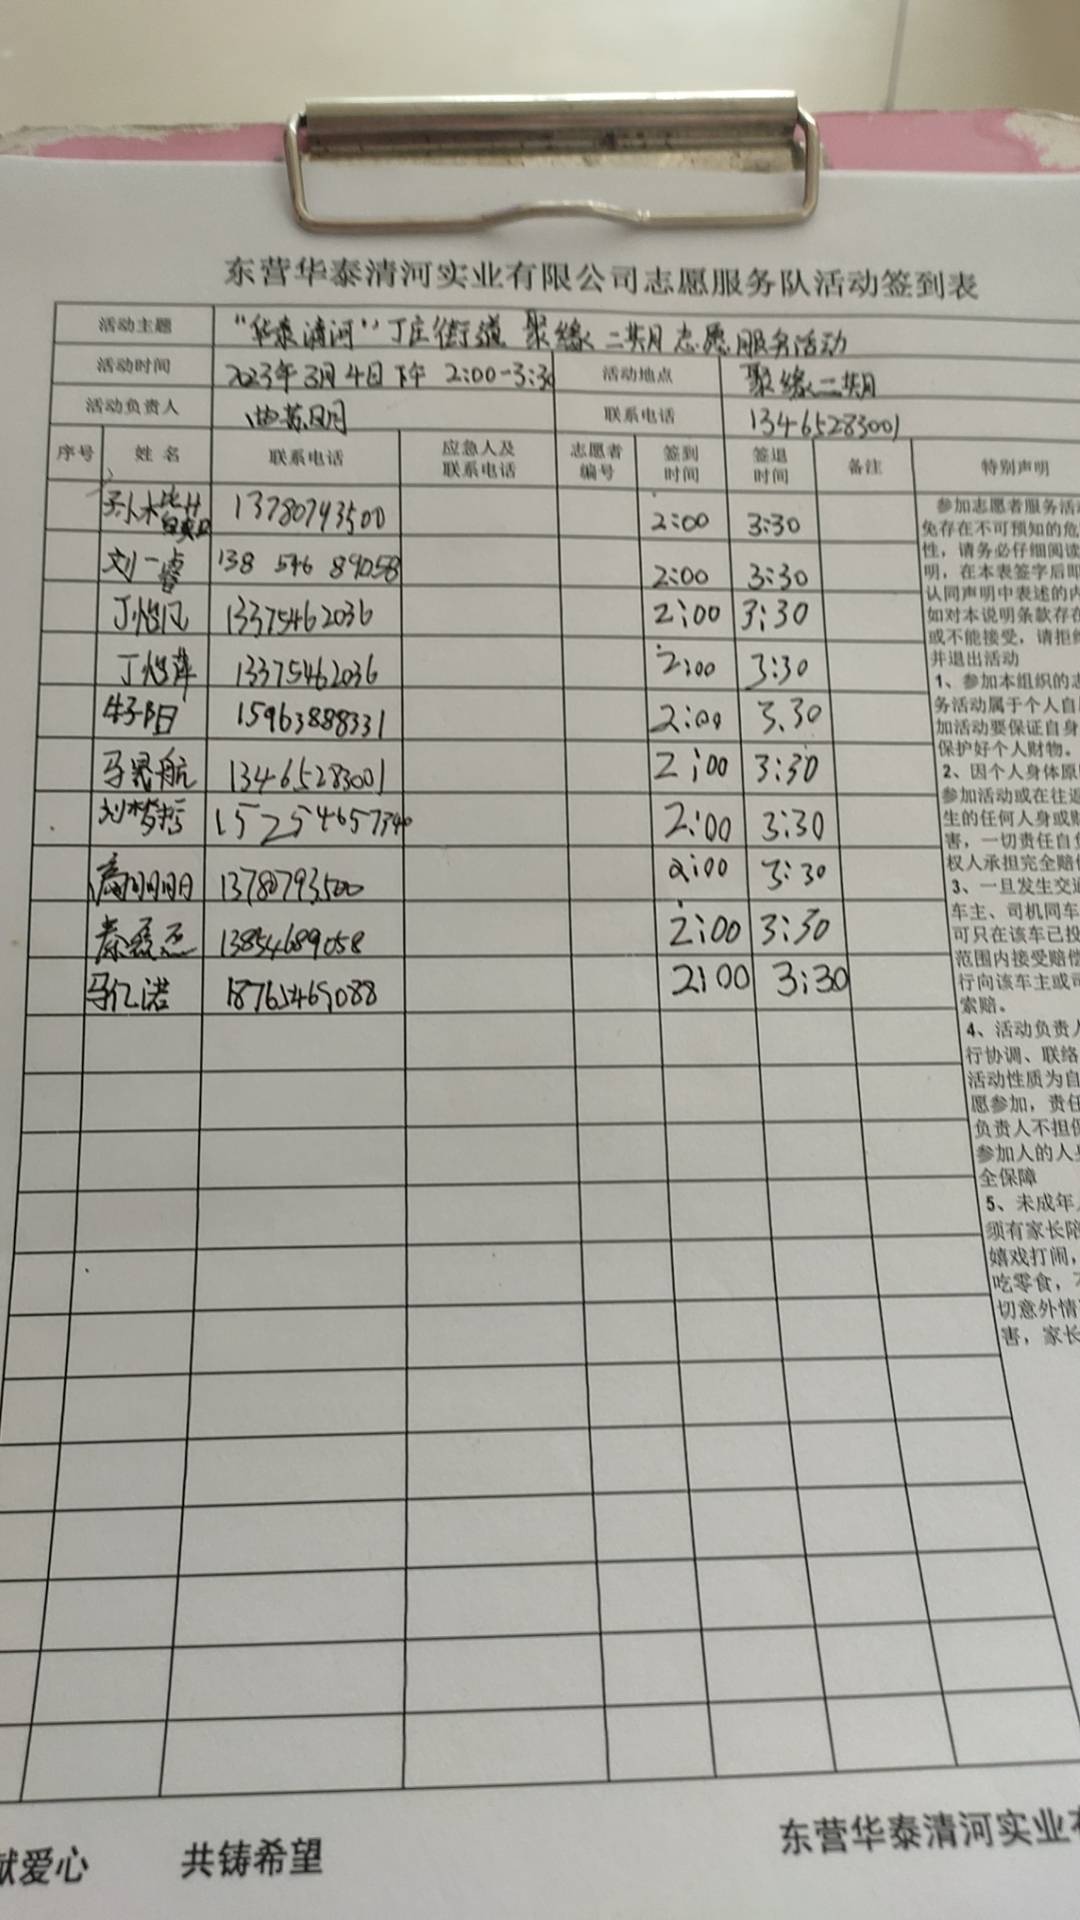 东营华泰清河实业有限公司志愿服务队活动签到表
活动主题 "华泰清河"丁庄街道 聚缘二期志愿服务活动
活动时间 2023年3月4日下午 2:00-3:30 活动地点 聚缘二期
活动负责人 曲苏明 联系电话 13465283001
序号 姓名 联系电话 应急人及联系电话 志愿者编号 签到时间 签退时间 备注 特别声明
13780793500 2:00 3:30
刘一睿 138 546 89058 2:00 3:30
丁怡凡 13375462036 2:00 3:30
丁怡萍 13375462036 2:00 3:30
15963888331 2:00 3.30
马晟航 13465283001 2:00 3:30
刘梦哲 15254657340 2:00 3:30
13780793500 2:00 3:30
秦磊杰 13854689058 2:00 3:30
马亿诺 18761469088 2:00 3:30
参加志愿者服务活
免存在不可预知的危
性，请务必仔细阅读
明，在本表签字后即
认同声明中表述的内
如对本说明条款存在
或不能接受，请拒绝
并退出活动
1、参加本组织的志
务活动属于个人自
加活动要保证自身
保护好个人财物。
2、因个人身体原
参加活动或在往返
生的任何人身或财
害，一切责任自负
权人承担完全赔偿
3、一旦发生交通
车主、司机同车
可只在该车已投
范围内接受赔偿
行向该车主或司
索赔。
4、活动负责人
行协调、联络
活动性质为自
愿参加，责任
负责人不担保
参加人的人身
全保障
5、未成年人
须有家长陪
嬉戏打闹，
吃零食，不
切意外情
害，家长
献爱心 共铸希望
东营华泰清河实业有